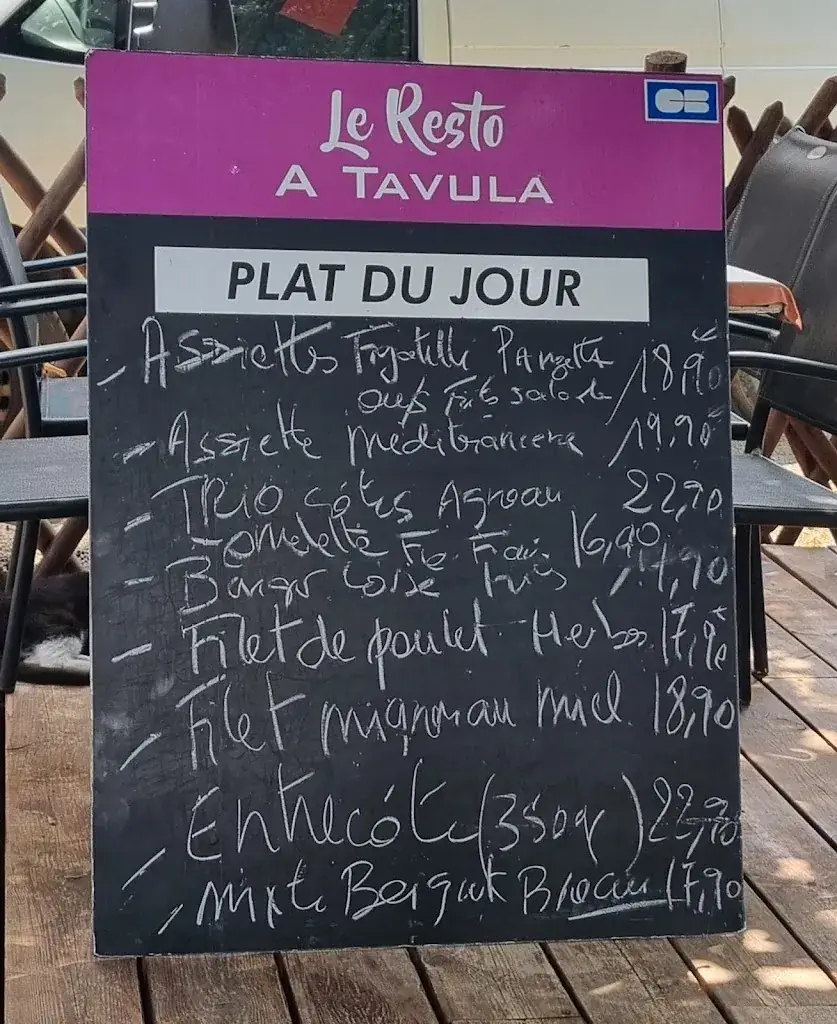 Le Resto
CB
A TAVULA
PLAT DU JOUR
- Assiettes Figatelli Panzetta 18,90
oeufs Frites salade
- Assiette méditerranéene 19,90
- TRIO côtes Agneau 22,90
omelette 16,90
- Burger Corse frites
- Filet de poulet Herbes 17,90
- Filet mignon au miel 18,90
- Entrecôte (350gr) 22,90
- mixte 17,90